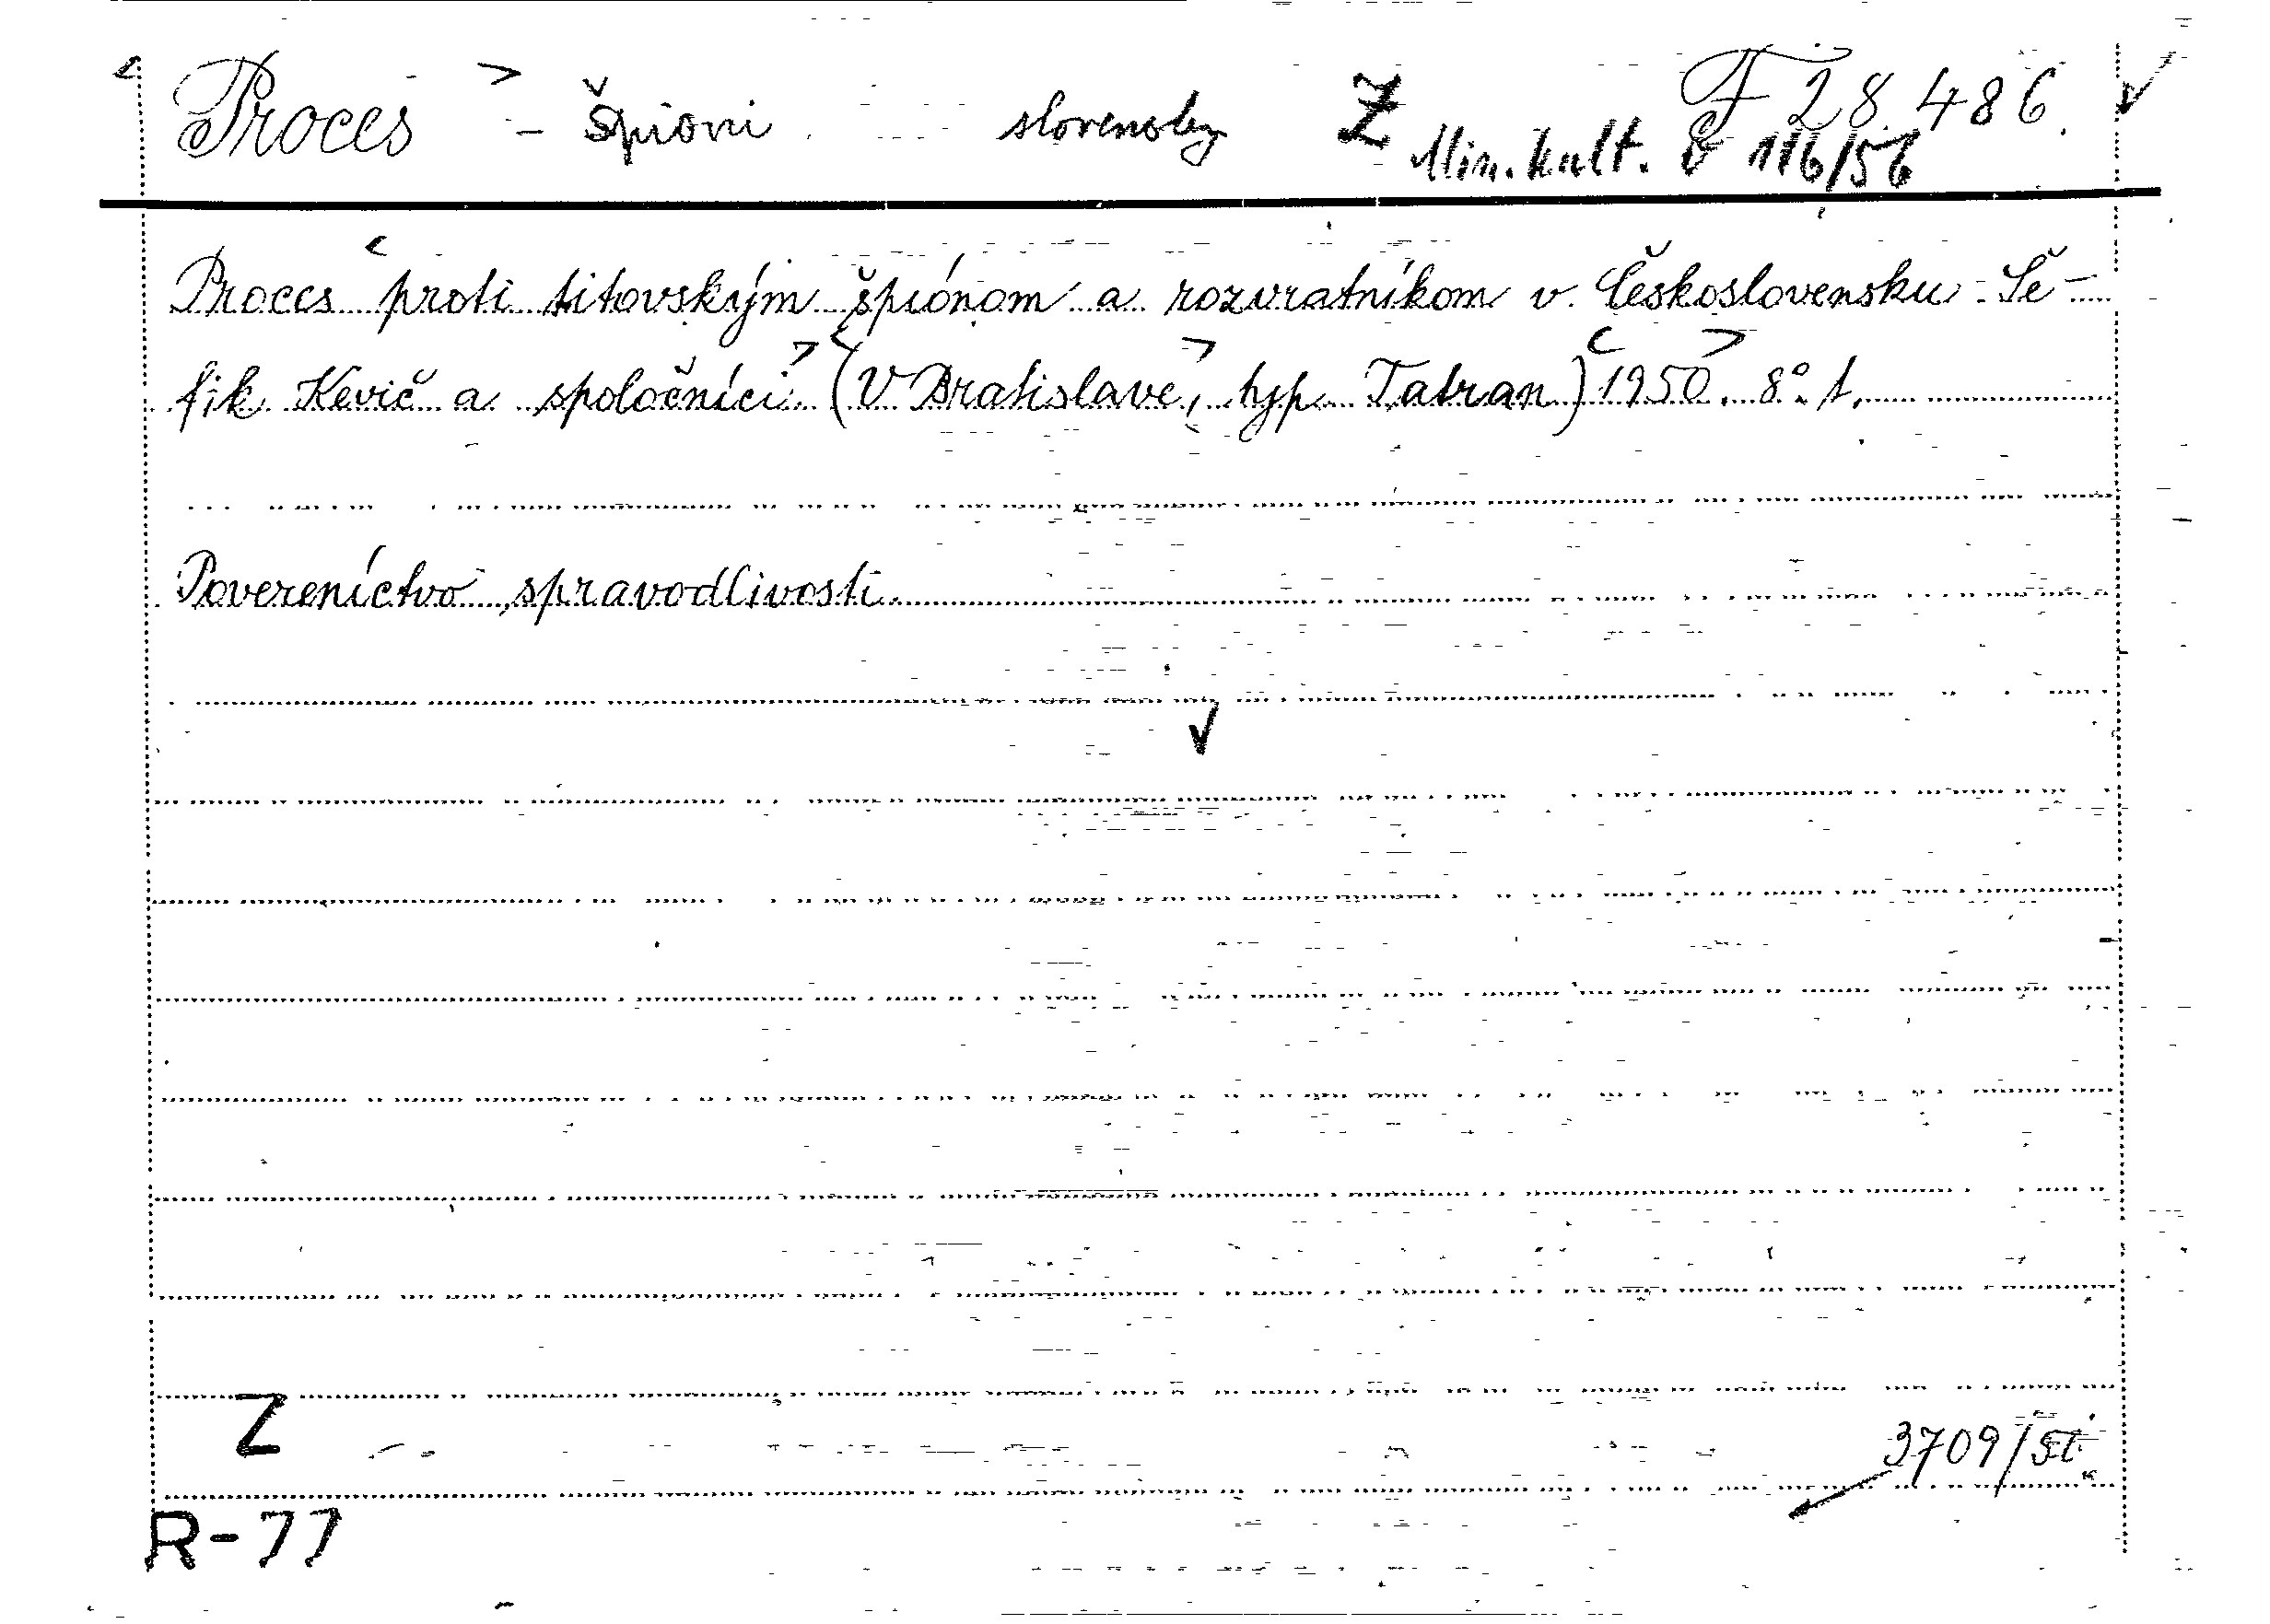 Proces - špioni slovensky Z F 28.486.
Min. kult. č 116/56
Proces proti titovským špiónom a rozvratníkom v Československu - Še-
fik Kevič a spoločníci (V Bratislave, typ. Tatran) 1950. 8°. 1.
Povereníctvo spravodlivosti.
Z
3709/51
R-77